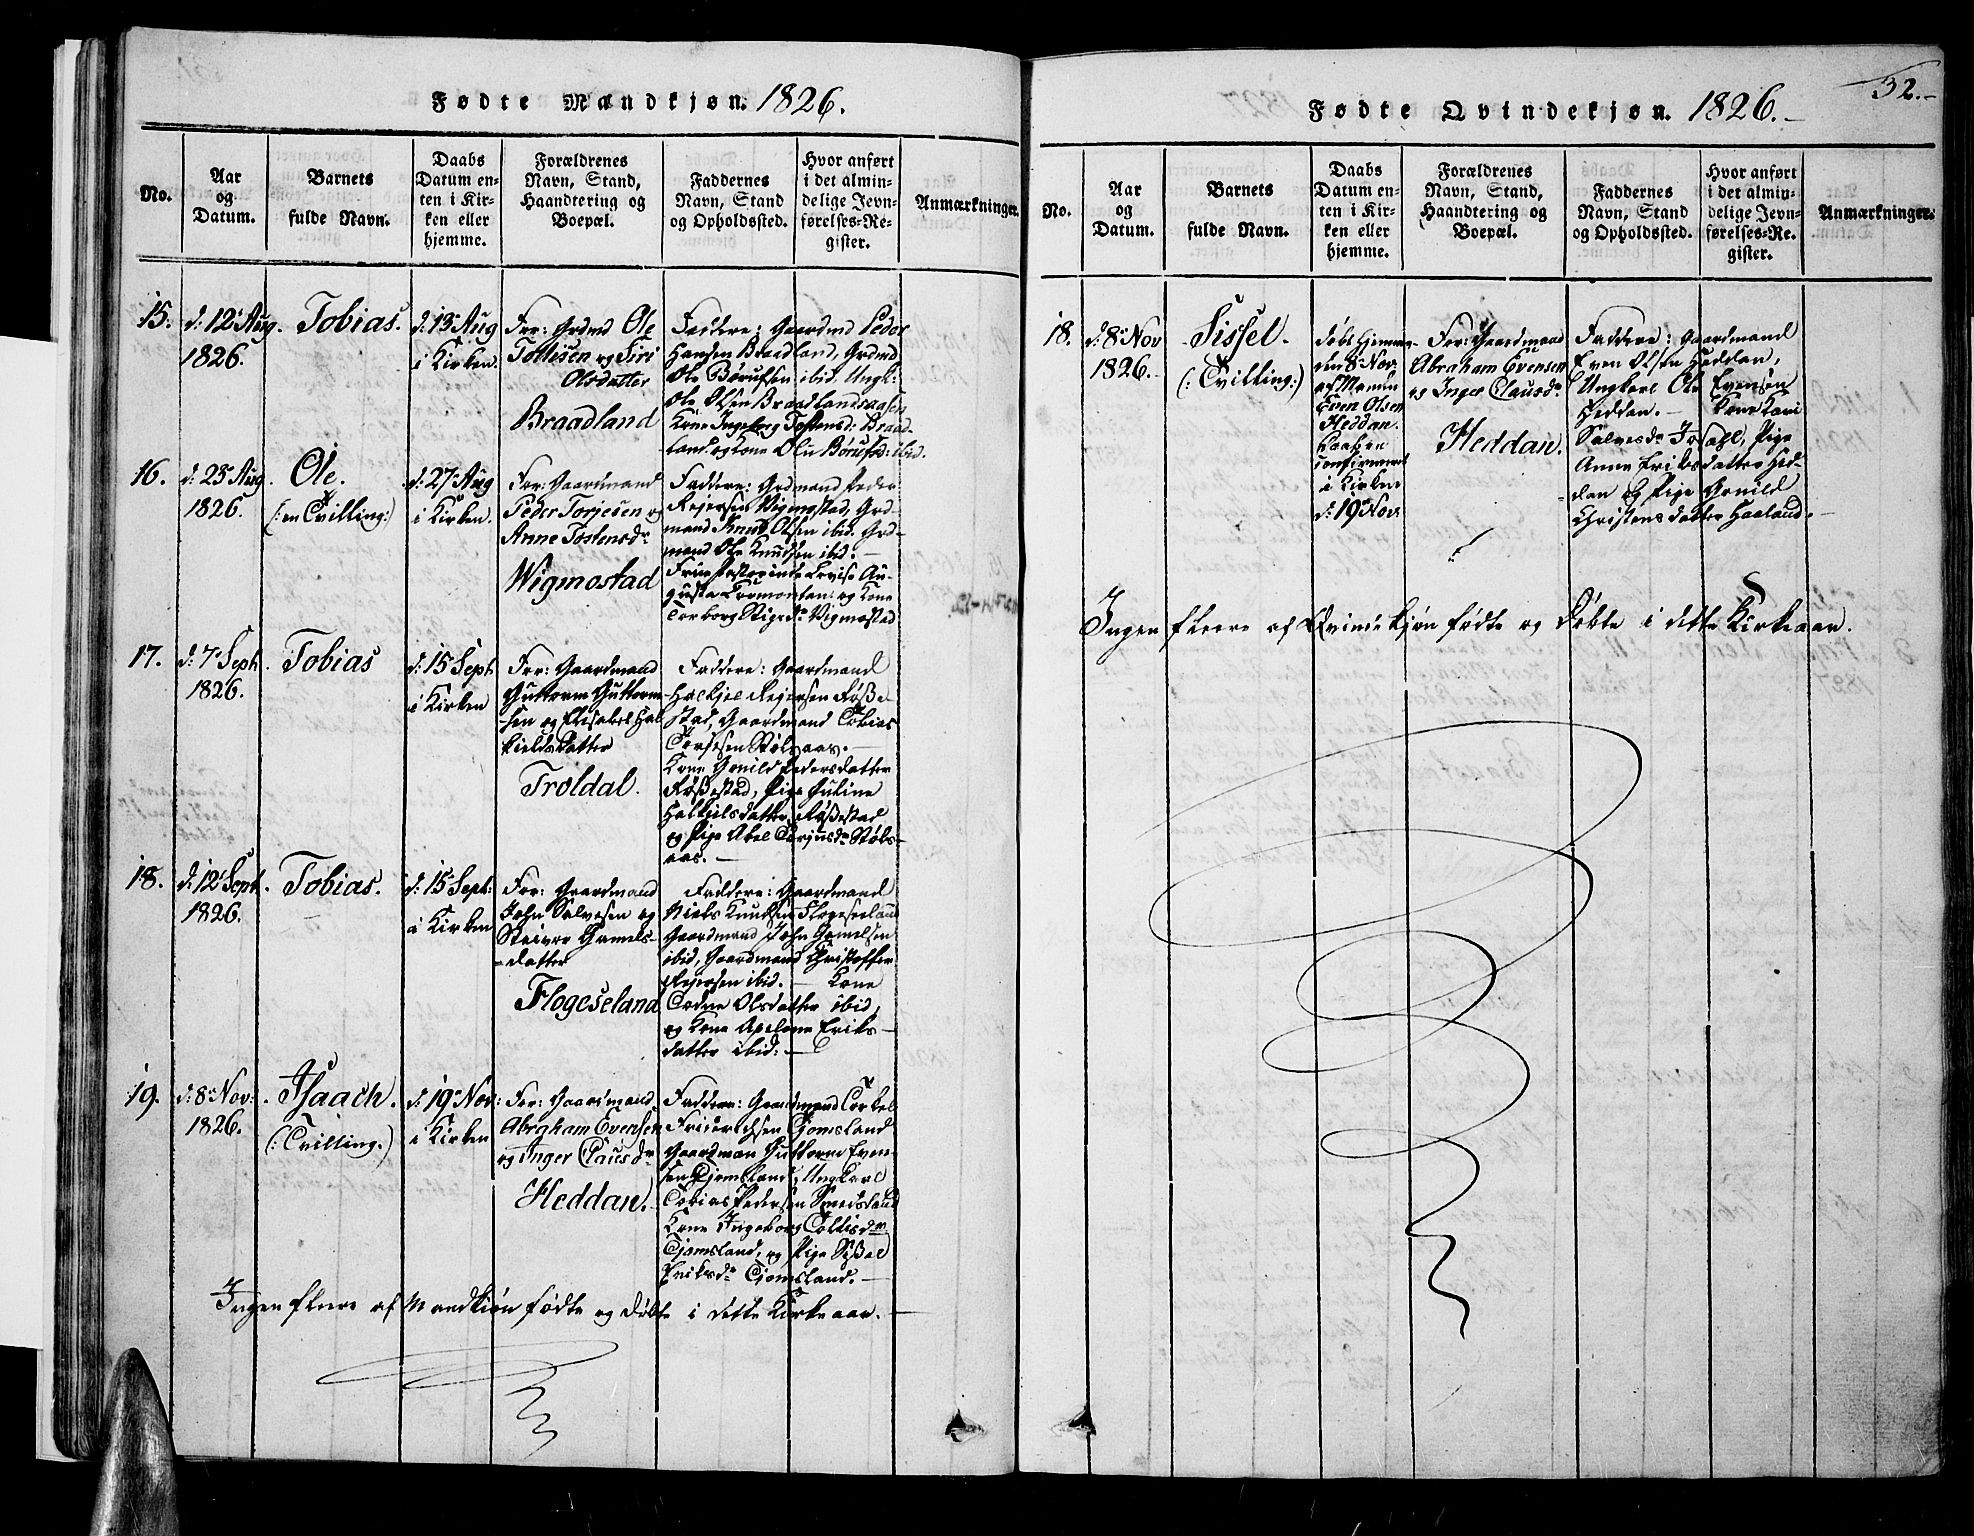 Fødte Mandkjøn. 1826.
No.
Aar
og
Datum.
Barnets
fulde Navn.
Daabs
Datum en-
ten i Kir-
ken eller
hjemme.
Forældrenes
Navn, Stand,
Haandtering og
Boepæl.
Faddernes
Navn, Stand
og Opholdssted.
Hvor anført
i det almin-
delige Jevn-
førelses-Re-
gister.
Anmærkninger.
15.
d: 12 Aug.
1826.
Tobias.
d: 13 Aug
i Kirken.
For: Grdmd Ole
Tostesen og Siri
Olsdatter
Braadland
Faddere: Gaardmd Peder
Hansen Braadland, Grdmd
Ole Børufsen ibid. Ungk:
Ole Olsen Braadlandsaasen
Kone Ingeborg Tostensd: Braad-
land og Kone Olu Børufsd: ibid.
16.
d: 23 Aug.
1826.
Ole.
(: en Tvilling:)
d: 27 Aug
i Kirken.
For: Gaardmand
Peder Torjesen og
Anne Tostensdr
Wigmostad
Faddere: Grdmand Peder
Reiersen Vigmostad, Grd-
mand Knud Olsen ibid. Grd-
mand Ole Knudsen ibid. –
Frue Pastorinde Lovise Au-
gusta og Kone
Torborg Stigsdr Vigmostad
17.
d: 7 Septb.
1826.
Tobias
d: 15 Sept
i Kirken
For: Gaardmand
Guttorm Guttorm-
sen og Elisabet Hal-
kieldsdatter
Troldal.
Faddere: Gaardmand
Halkjel Reiersen Røsse-
stad, Gaardmand Tobias
Torjesen Stølsaas. –
Kone Gonild Pedersdatter
Røssestad, Pige Juline
Halkjelsdatter Røssestad
og Pige Abel Torjusdr Støls-
aas. –
18.
d: 12 Sept.
1826.
Tobias.
d: 15 Sept:
i Kirken
For: Gaardmand
John Salvesen og
Steiver Gamels-
datter
Flogeseland
Faddere: Gaardmand
Niels Knudsen Flogeseland
Gaardmand John Gamelsen
ibid, Gaardmand Christoffer
Reiersen ibid. – Kone
Olsdatter ibid,
og Kone Apelone Eriks-
datter ibid: –
19.
d: 8 Nov:
1826.
Isaach.
(: Tvilling:)
d: 19 Nov:
i Kirken
For: Gaardmand
Abraham Evensen
og Inger Clausdr
Heddan.
Faddere: Gaardmand Torkel
Friderichsen Tjomsland
Gaardman Guttorm Even-
sen Tjomsland, Ungkarl
Tobias Pedersen Smedsland
Kone Ingeborg
Tjomsland, og Pige Sissel
Eriksdr Tjomsland. –
Ingen fleere af Mandkiøn fødte og døbte i dette Kirkeaar. –
32.
Fødte Qvindekjøn. 1826.
No.
Aar
og
Datum.
Barnets
fulde Navn.
Daabs
Datum en-
ten i Kir-
ken eller
hjemme.
Forældrenes
Navn, Stand,
Haandtering og
Boepæl.
Faddernes
Navn, Stand
og Opholdssted.
Hvor anført
i det almin-
delige Jevn-
førelses-Re-
gister.
Anmærkninger.
18.
d: 8 Nov
1826.
Sissel.
(: Tvilling:)
døbt hjemme
den 8 Nov:
af Manden
Even Olsen
Heddan.
Daaben
confirmert
i Kirken
d: 19 Nov:
For: Gaardmand
Abraham Evensen
og Inger Clausdr
Heddan.
Faddere: Gaardmand
Even Olsen Heddan,
Ungkarl Ole Evensen
Heddan. – Kone Kari
Salvesdr Pige
Anne Eriksdatter Hed-
dan og Pige Gonild
Christensdatter Haaland. –
Ingen fleere af Qvindekjøn fødte og Døbte i dette Kirkeaar.